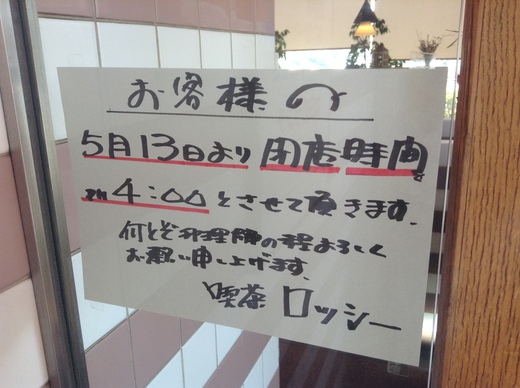 お客様へ
5月13日より閉店時間を
PM4:00とさせて頂きます.
何とぞ御理解の程よろしく
お願い申し上げます.
喫茶 ロッシー